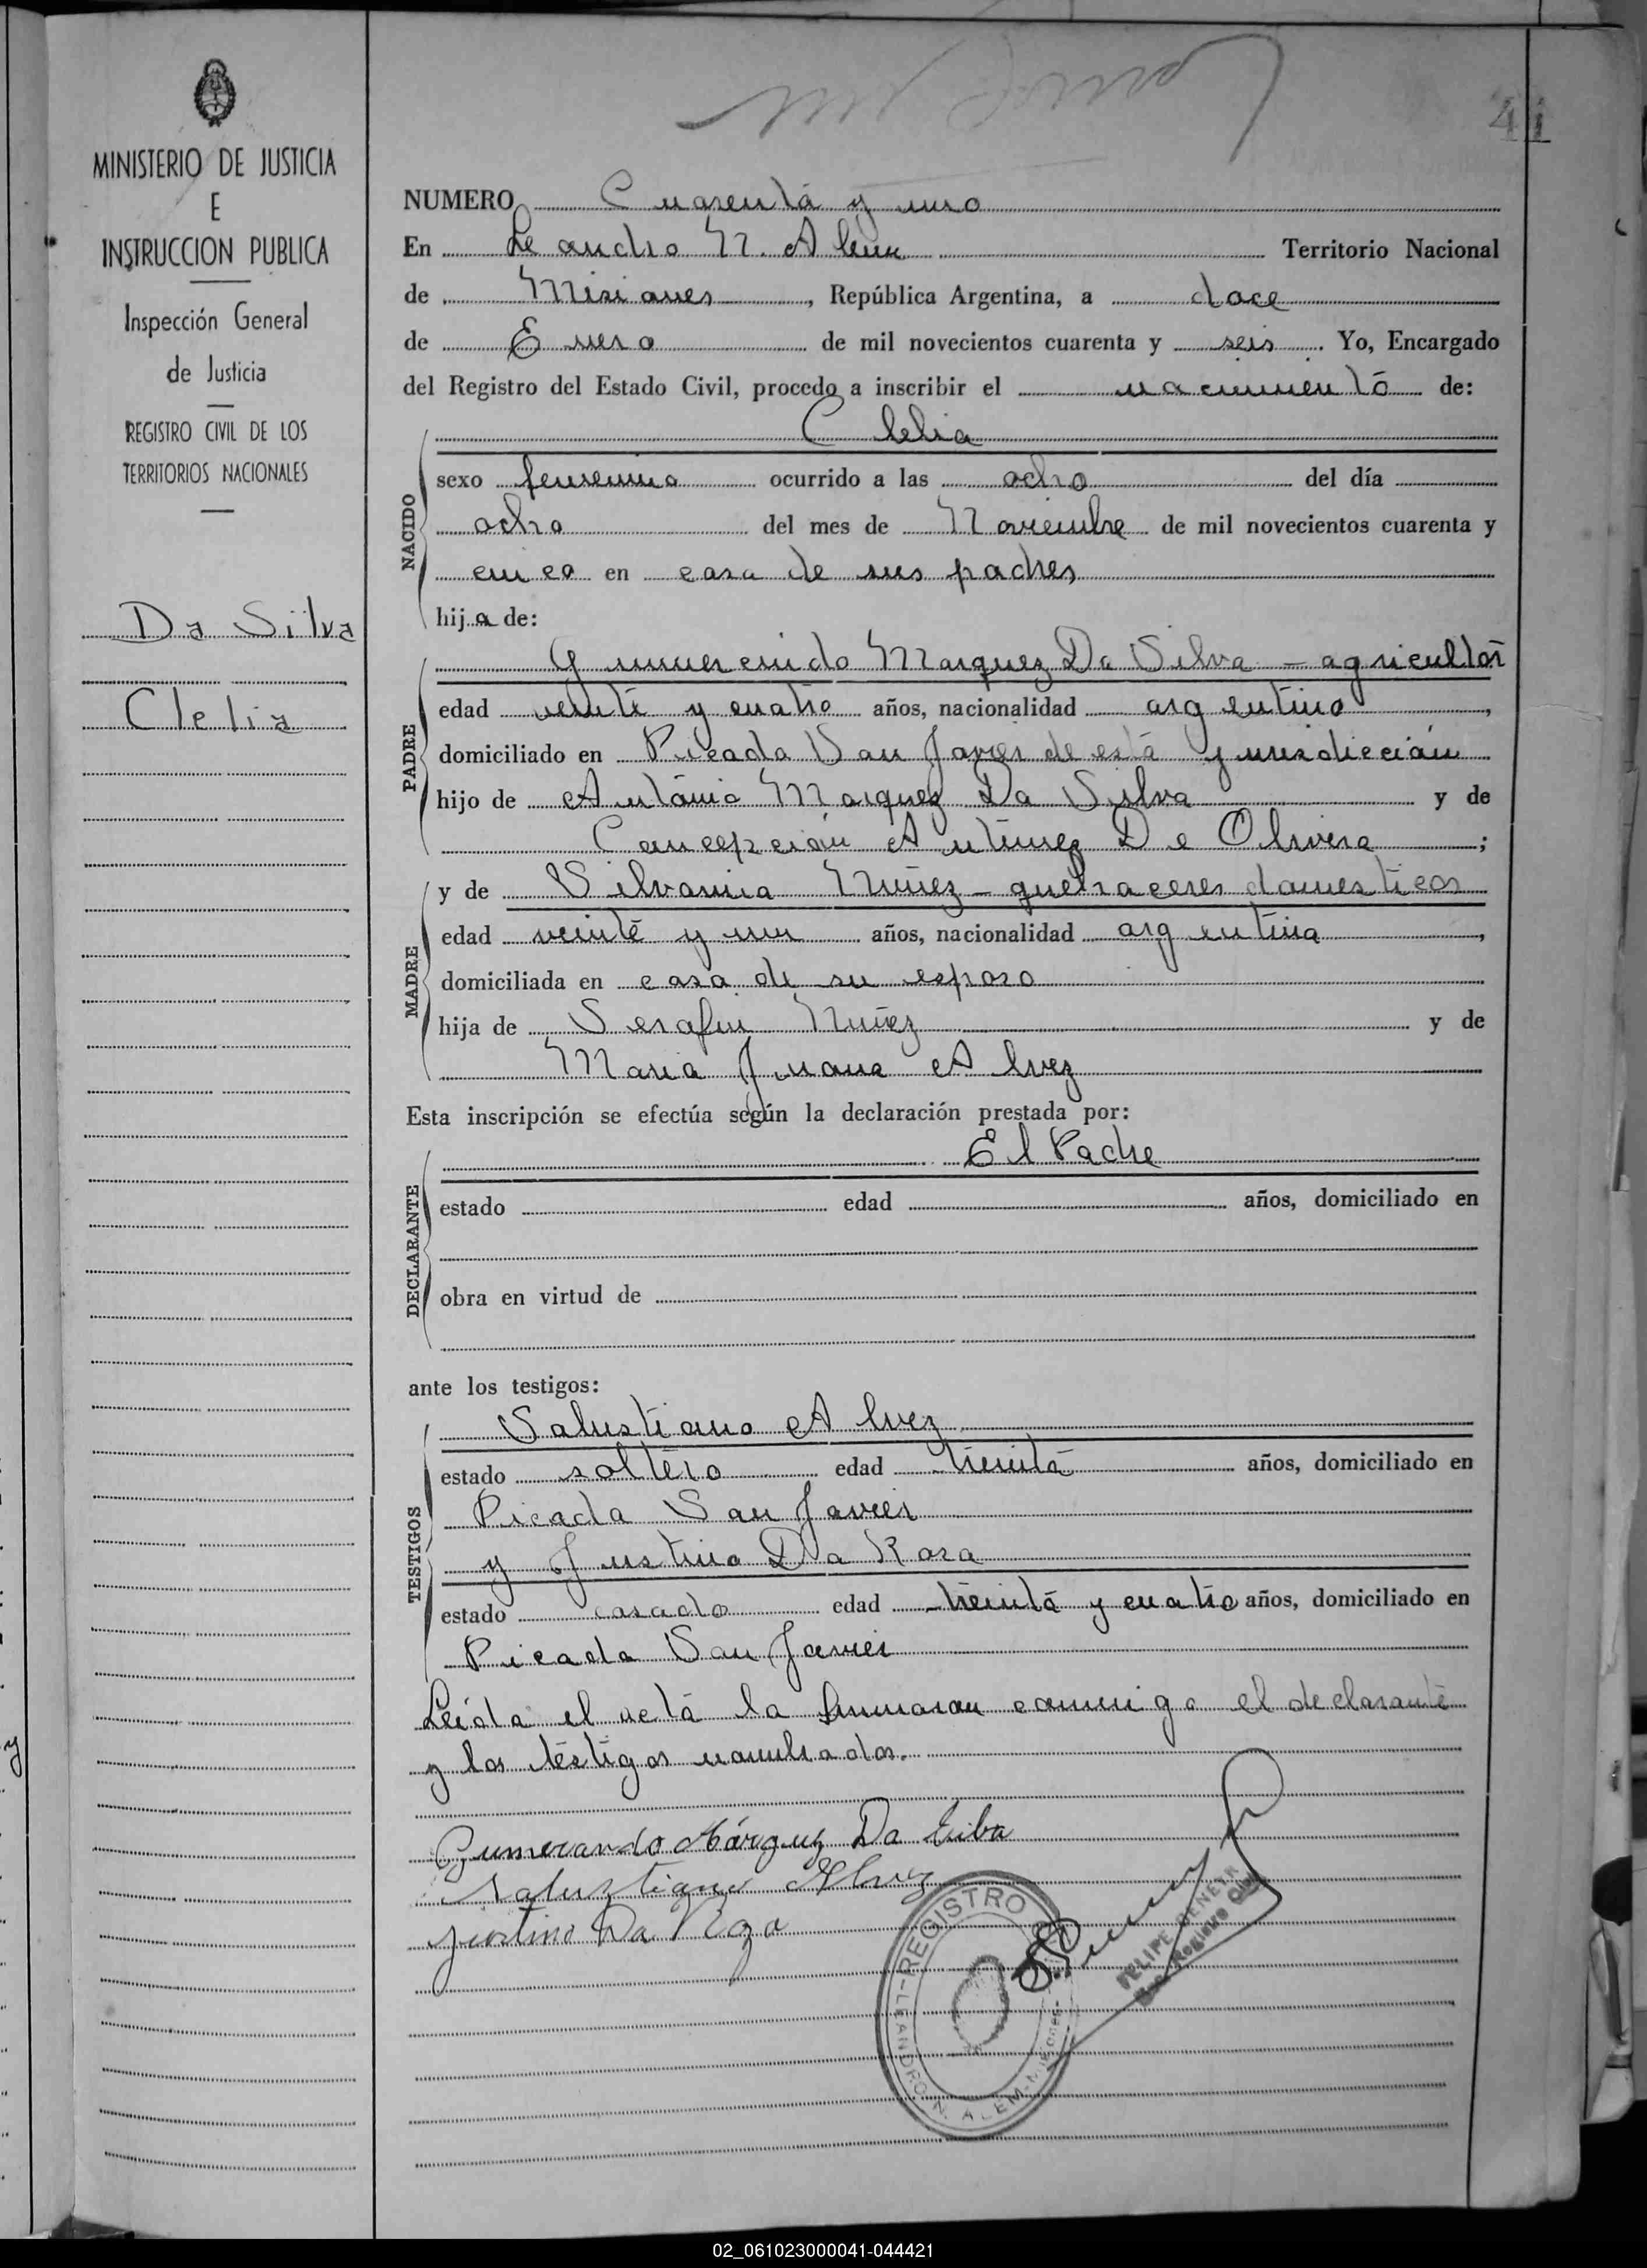 MINISTERIO DE JUSTICIA
E
INSTRUCCION PUBLICA
Inspección General
de Justicia
REGISTRO CIVIL DE LOS
TERRITORIOS NACIONALES
Da Silva
Clelia
41
NUMERO Cuarenta y uno
En Leandro N. Alem Territorio Nacional
de Misiones, República Argentina, a doce
de Enero de mil novecientos cuarenta y seis. Yo, Encargado
del Registro del Estado Civil, procedo a inscribir el nacimiento de:
Clelia
NACIDO
sexo femenino ocurrido a las ocho del día
ocho del mes de Noviembre de mil novecientos cuarenta y
cinco en casa de sus padres
hija de:
PADRE
Gumercindo Marquez Da Silva - agricultor
edad veinte y cuatro años, nacionalidad argentino,
domiciliado en Picada San Javier de esta jurisdicción
hijo de Antonio Marquez Da Silva y de
Concepción Antunez De Olivera;
MADRE
y de Silvania Nuñez - quehaceres domesticos
edad veinte y un años, nacionalidad argentina,
domiciliada en casa de su esposo
hija de Serafin Nuñez y de
Maria Juana Alvez
Esta inscripción se efectúa según la declaración prestada por:
El Padre
DECLARANTE
estado edad años, domiciliado en
obra en virtud de
ante los testigos:
TESTIGOS
Salustiano Alvez
estado soltero edad treinta años, domiciliado en
Picada San Javier
y Justino Da Rosa
estado casado edad treinta y cuatro años, domiciliado en
Picada San Javier
Leída el acta la firmaron conmigo el declarante
y los testigos nombrados.
Gumerando Márquez Da Silva
Saluztiano Alvez
Justino Da Roza
REGISTRO
LEANDRO N. ALEM - Misiones
FELIPE
Registro Civil
02_061023000041-044421